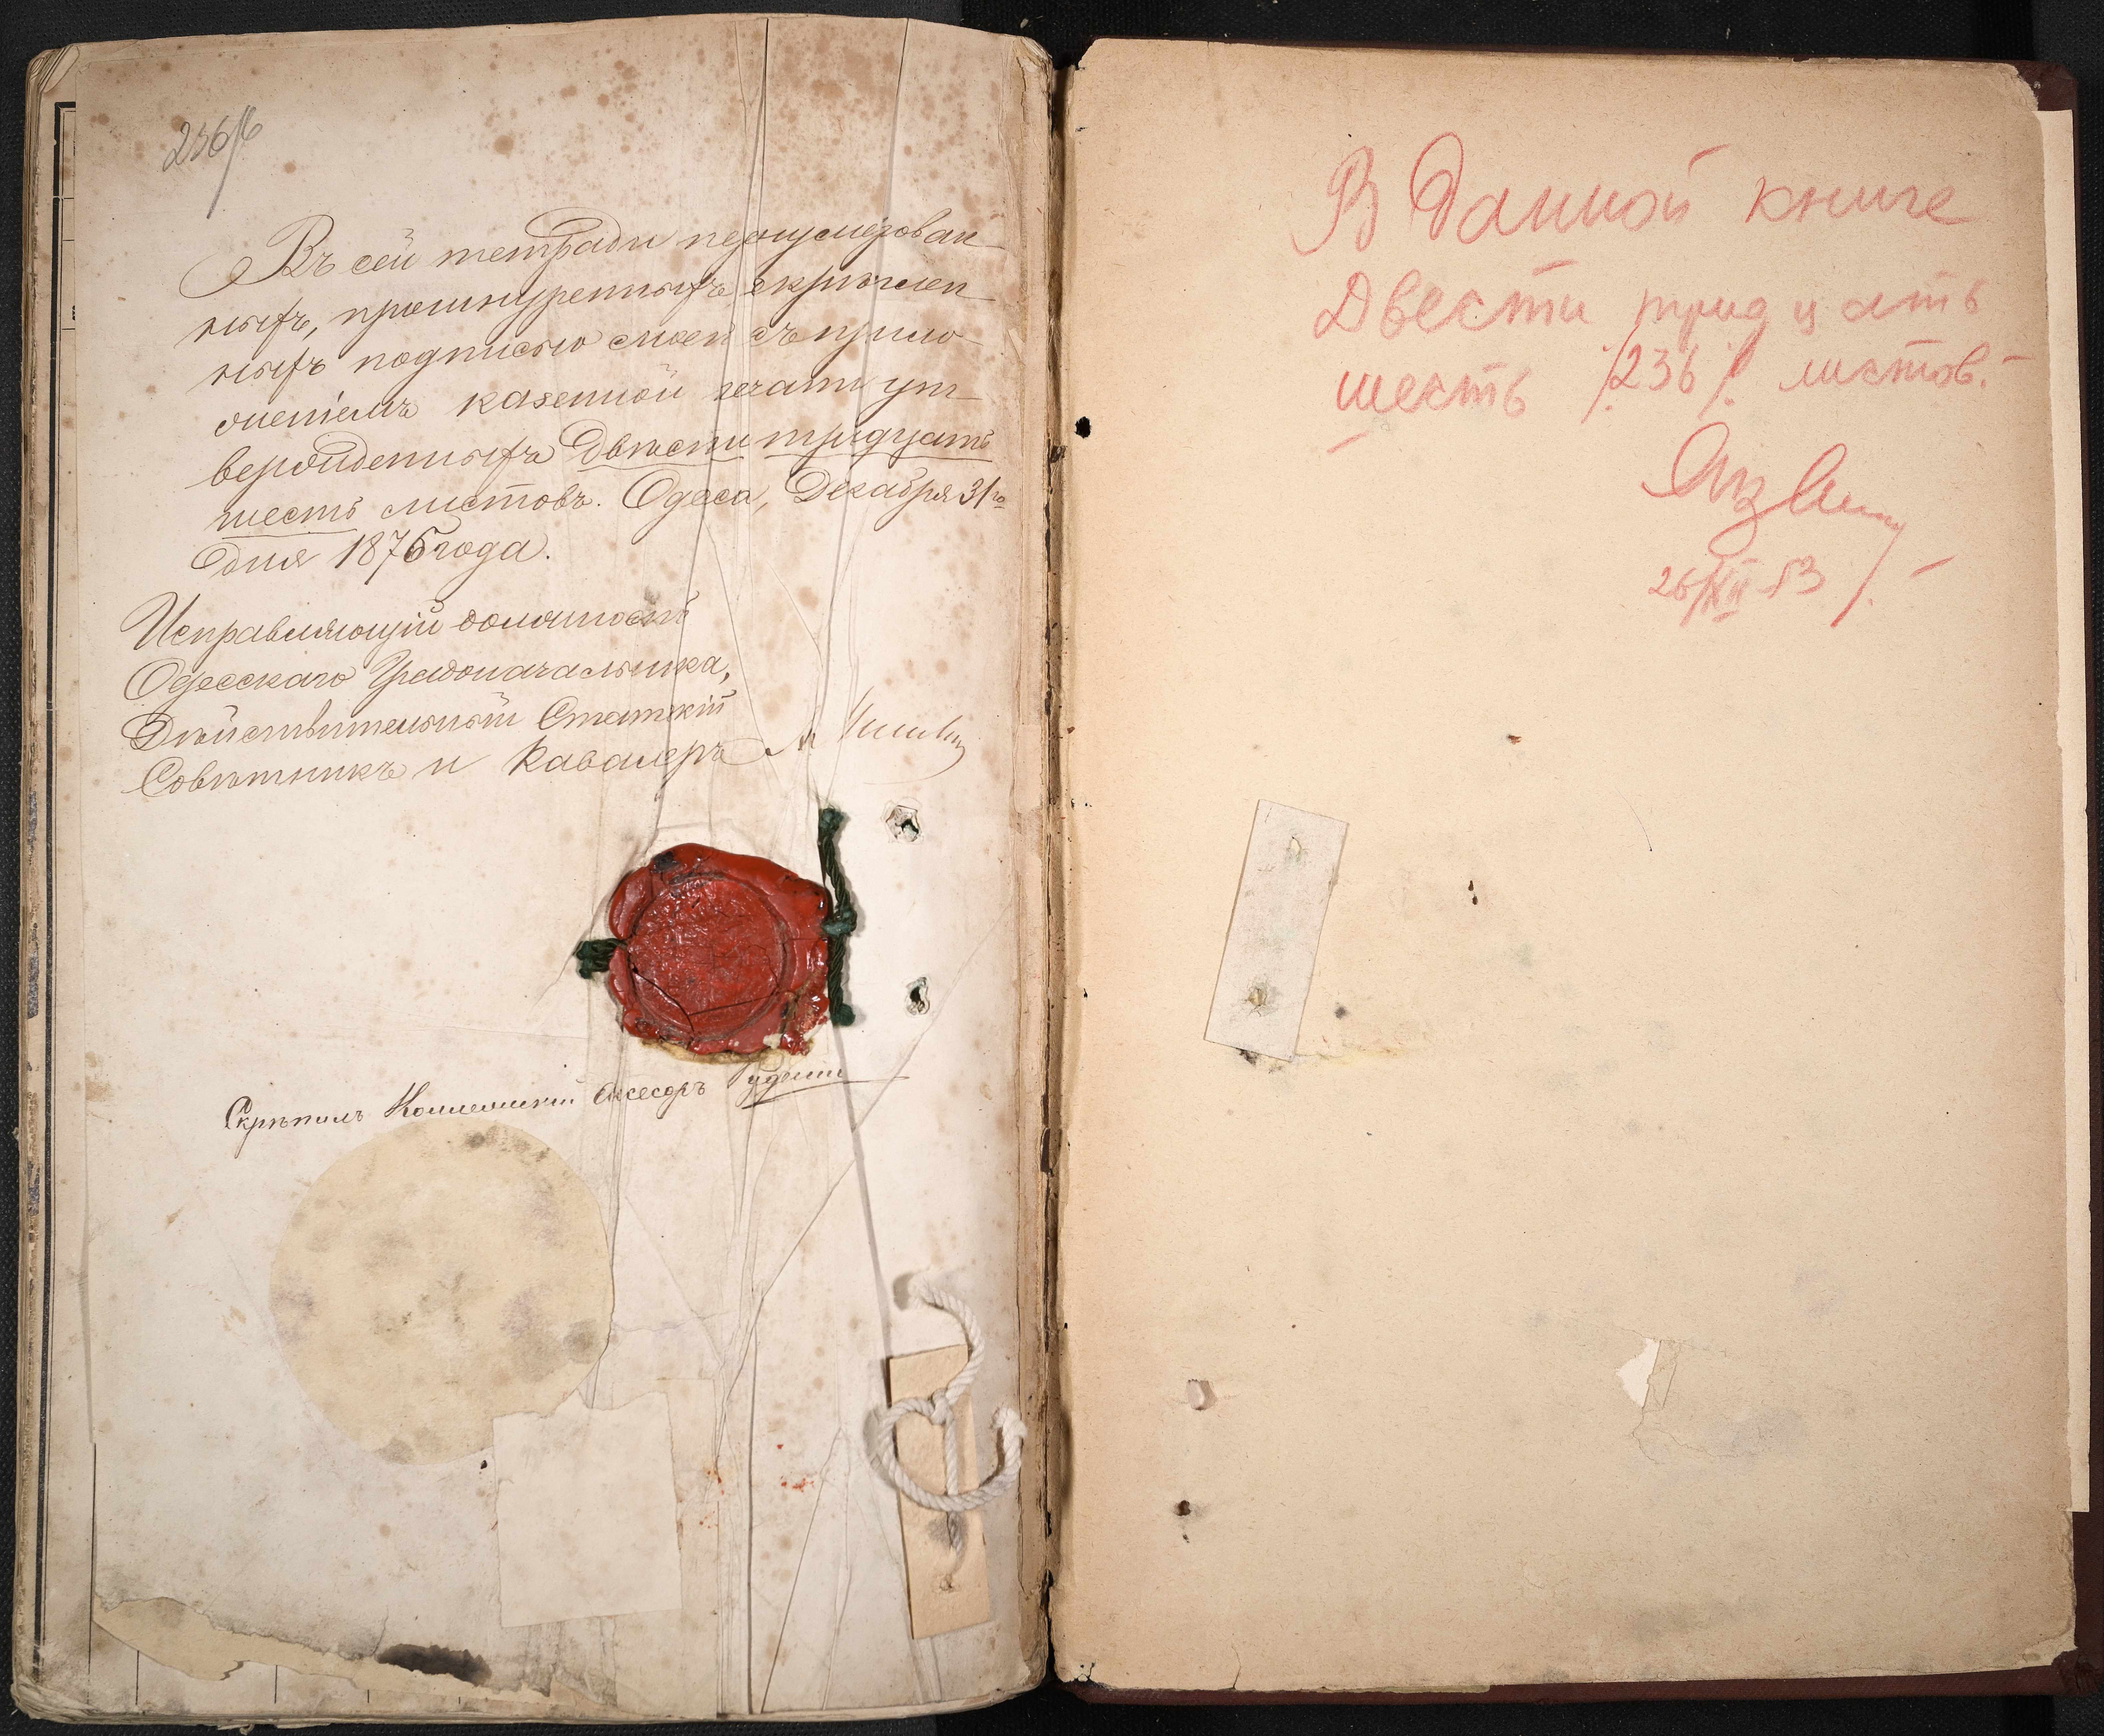 236/б
Въ сей тетради перенумерован
ныхъ, прошнуренныхъ, скрѣплен
ныхъ подписью моей съ прило
женіемъ казенной печати ут
вержденныхъ двѣсти тридцать
шесть листовъ. Одесса, Декабря 31го
дня 1876 года.
Исправляющій должность
Одесскаго Градоначальника,
Дѣйствительный Статскій
Совѣтникъ и Кавалеръ
Скрѣпилъ Коллежскій Асесоръ
В данной книге
Двести тридцать
шесть /236/ листов.
26/XII 53